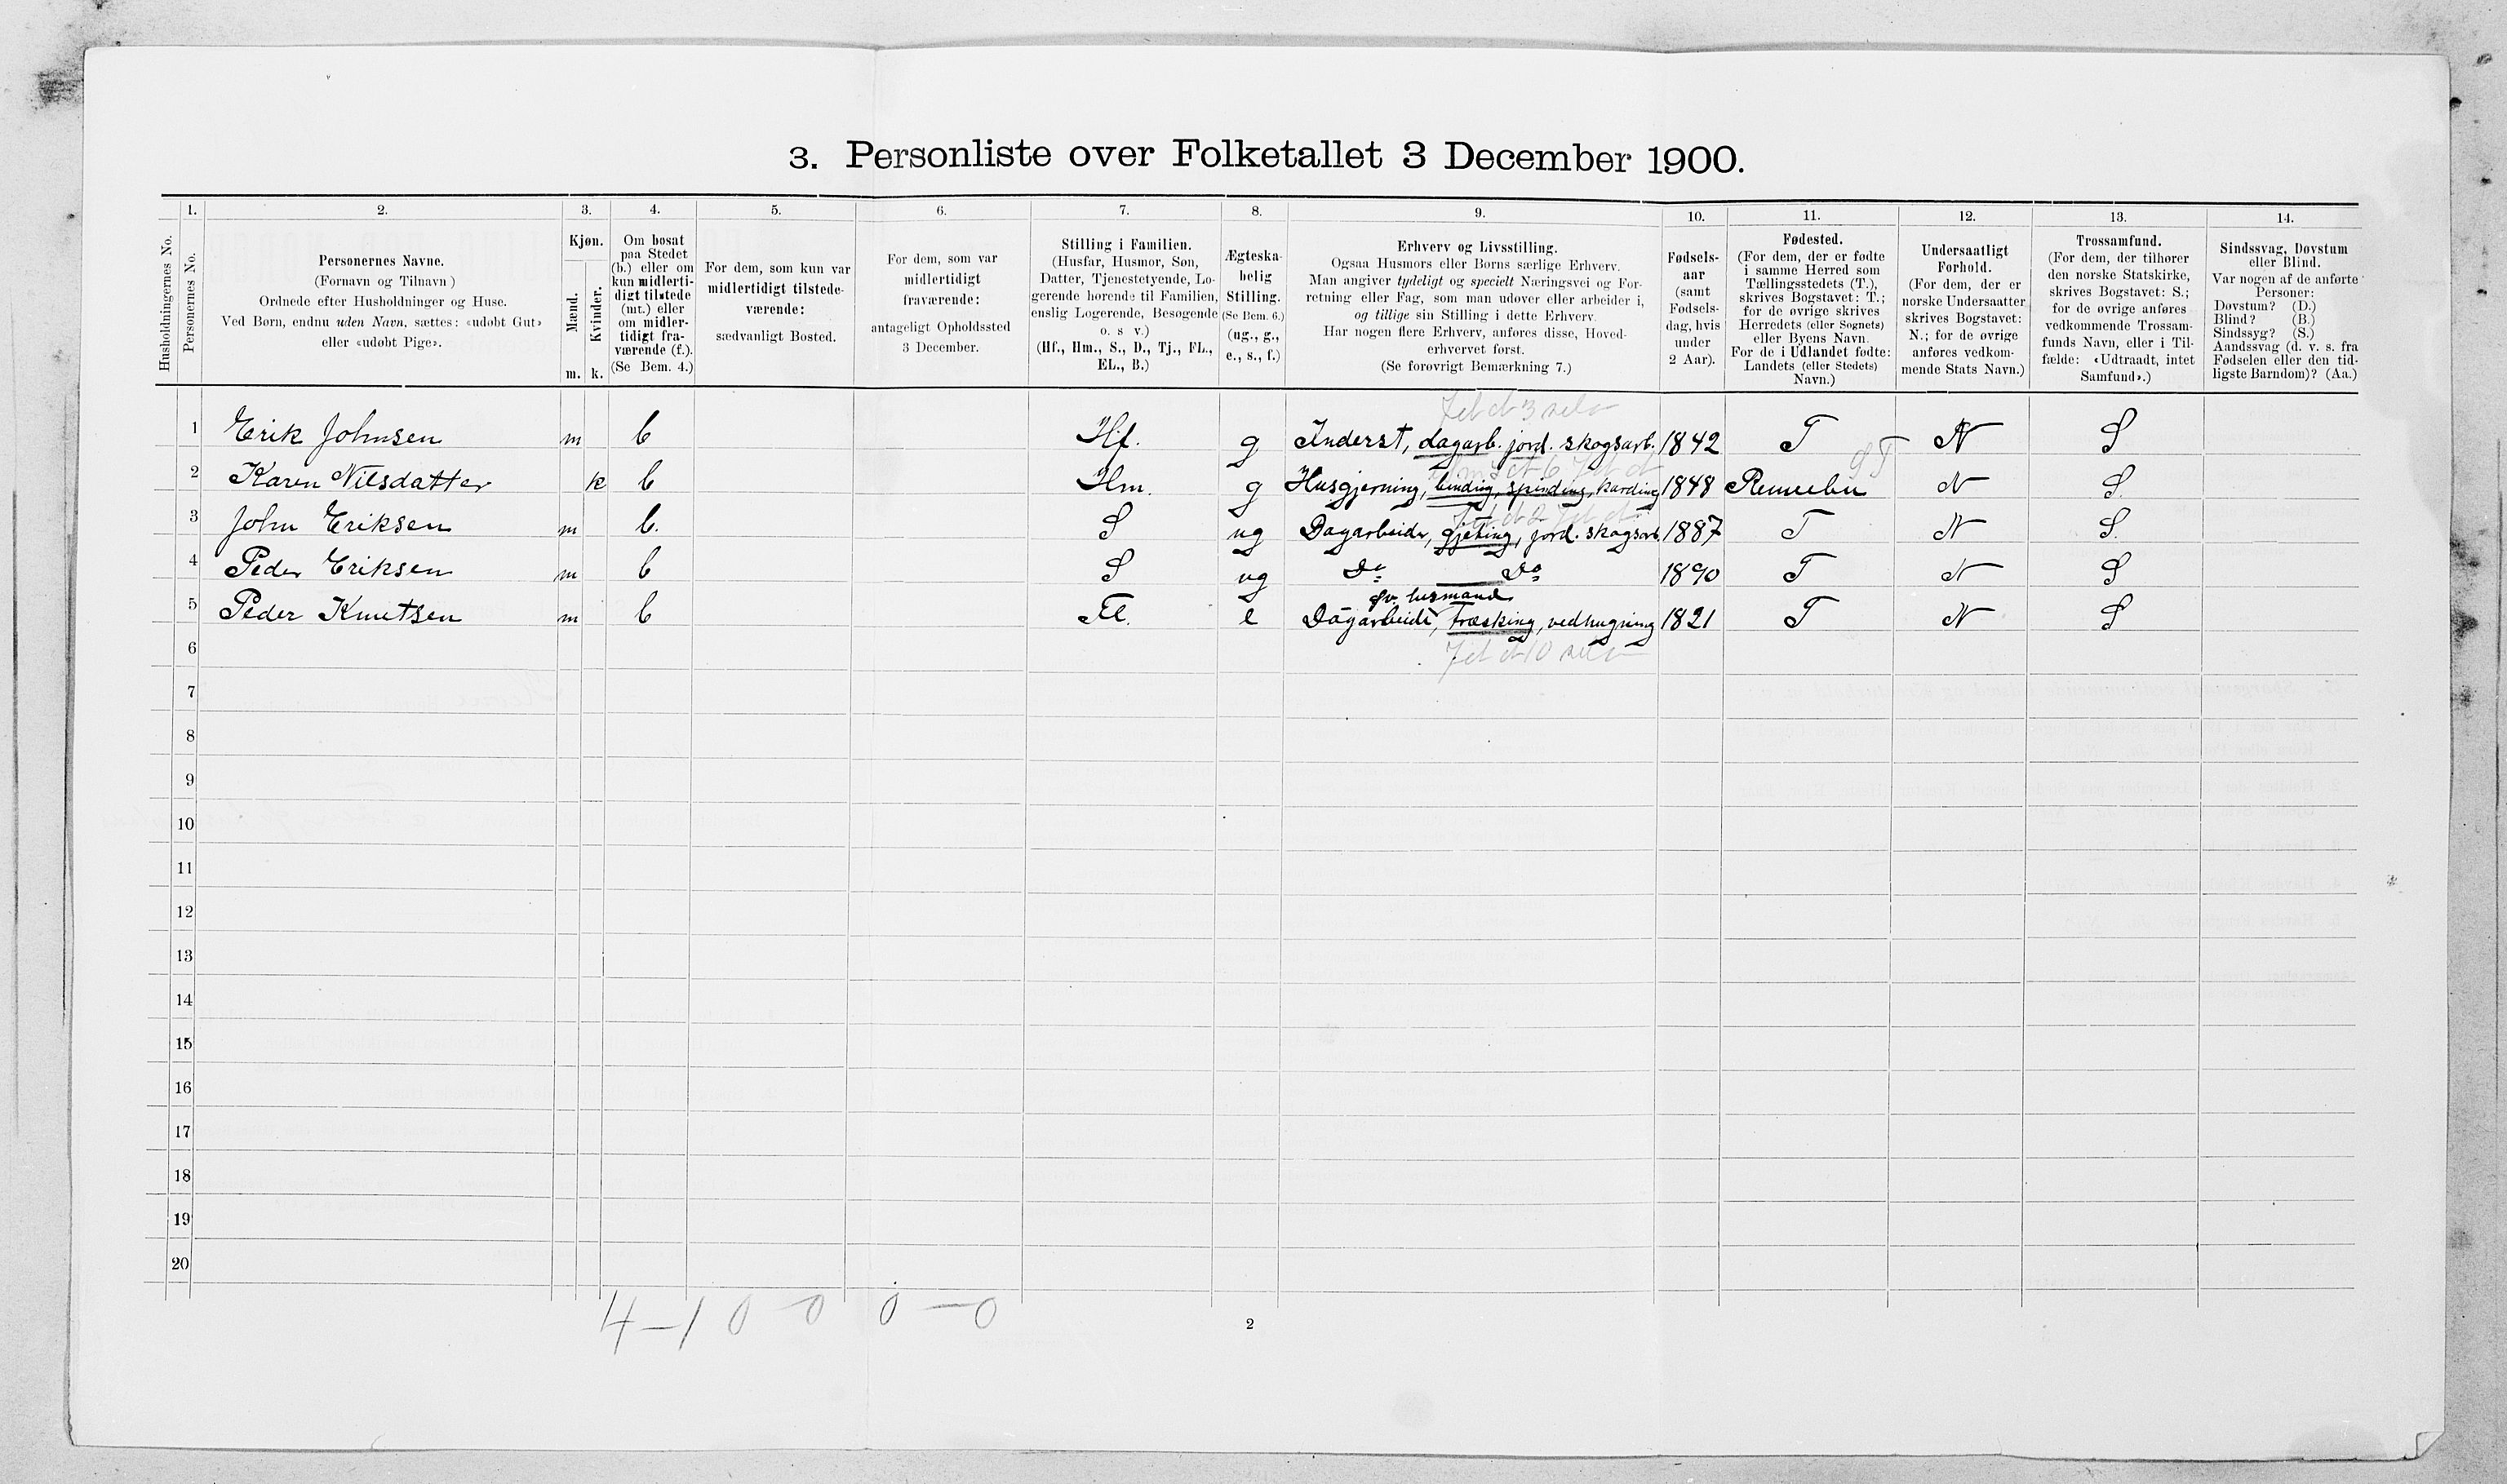 3. Personliste over Folketallet 3 December 1900.
Husholdningernes No.
1.
Personernes No.
2.
Personernes Navne.
(Fornavn og Tilnavn)
Ordnede efter Husholdninger og Huse.
Ved Børn, endnu uden Navn, sættes: «udøbt Gut»
eller «udøbt Pige».
3.
Kjøn.
Mænd.
Kvinder.
m. k.
4.
Om bosat
paa Stedet
(b.) eller om
kun midlerti-
digt tilstede
(mt.) eller
om midler-
tidigt fra-
værende (f.).
(Se Bem. 4.)
5.
For dem, som kun var
midlertidigt tilstede-
værende:
sædvanligt Bosted.
6.
For dem, som var
midlertidigt
fraværende:
antageligt Opholdssted
3 December.
7.
Stilling i Familien.
(Husfar, Husmor, Søn,
Datter, Tjenestetyende, Lo-
gerende hørende til Familien,
enslig Logerende, Besøgende
o. s v.)
(Hf., Hm., S., D., Tj., FL.,
EL., B.)
8.
Ægteska-
belig
Stilling.
(Se Bem. 6.)
(ug., g.,
e., s., f.)
9.
Erhverv og Livsstilling.
Ogsaa Husmors eller Børns særlige Erhverv.
Man angiver tydeligt og specielt Næringsvei og For-
retning eller Fag, som man udøver eller arbeider i,
og tillige sin Stilling i dette Erhverv.
Har nogen flere Erhverv, anføres disse, Hoved-
erhvervet først.
(Se forøvrigt Bemærkning 7.)
10.
Fødsels-
aar
(samt
Fødsels-
dag, hvis
under
2 Aar).
11.
Fødested.
(For dem, der er fødte
i samme Herred som
Tællingsstedets (T.),
skrives Bogstavet: T.;
for de øvrige skrives
Herredets (eller Sognets)
eller Byens Navn.
For de i Udlandet fødte:
Landets (eller Stedets)
Navn.)
12.
Undersaatligt
Forhold.
(For dem, der er
norske Undersaatter
skrives Bogstavet:
N.; for de øvrige
anføres vedkom-
mende Stats Navn.)
13.
Trossamfund.
(For dem, der tilhører
den norske Statskirke,
skrives Bogstavet: S.;
for de øvrige anføres
vedkommende Trossam-
funds Navn, eller i Til-
fælde: «Udtraadt, intet
Samfund».)
14.
Sindssvag, Døvstum
eller Blind.
Var nogen af de anførte
Personer:
Døvstum? (D.)
Blind? (B.)
Sindssyg? (S.)
Aandssvag (d. v. s. fra
Fødselen eller den tid-
ligste Barndom)? (Aa.)
1 Erik Johnsen m b Hf. g Inderst, dagarb. jord. skogsarb. 1842 T N S
2 Karen Nilsdatter k b Hm. g Husgjerning, binding, spinding, karding 1848 Rennebu N S.
3 John Eriksen m b. S ug Dagarbeider, gjeting, jord. skogsarb. 1887 T N S.
4 Peder Eriksen m b S ug Do Do 1890 T N S
fv. husmand
5 Peder Knutsen m b Fl. e Dagarbeide, træsking, vedhugning 1821 T N S
6
7
8
9
10
11
12
13
14
15
16
17
18
19
20
4-1 0 0 0-0
2